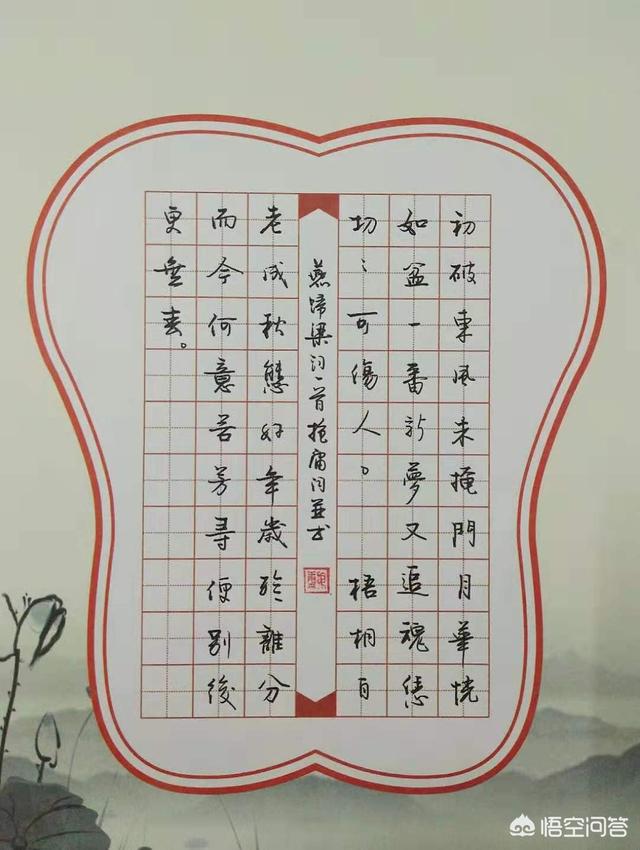 初破東風未掩門月華恍
如盆一番新夢又追魂恁
切〻可傷人。 梧桐自
燕歸梁词一首
老成秋態好年歲於離分
而今何意苦芳尋便別後
更無春。
悟空问答